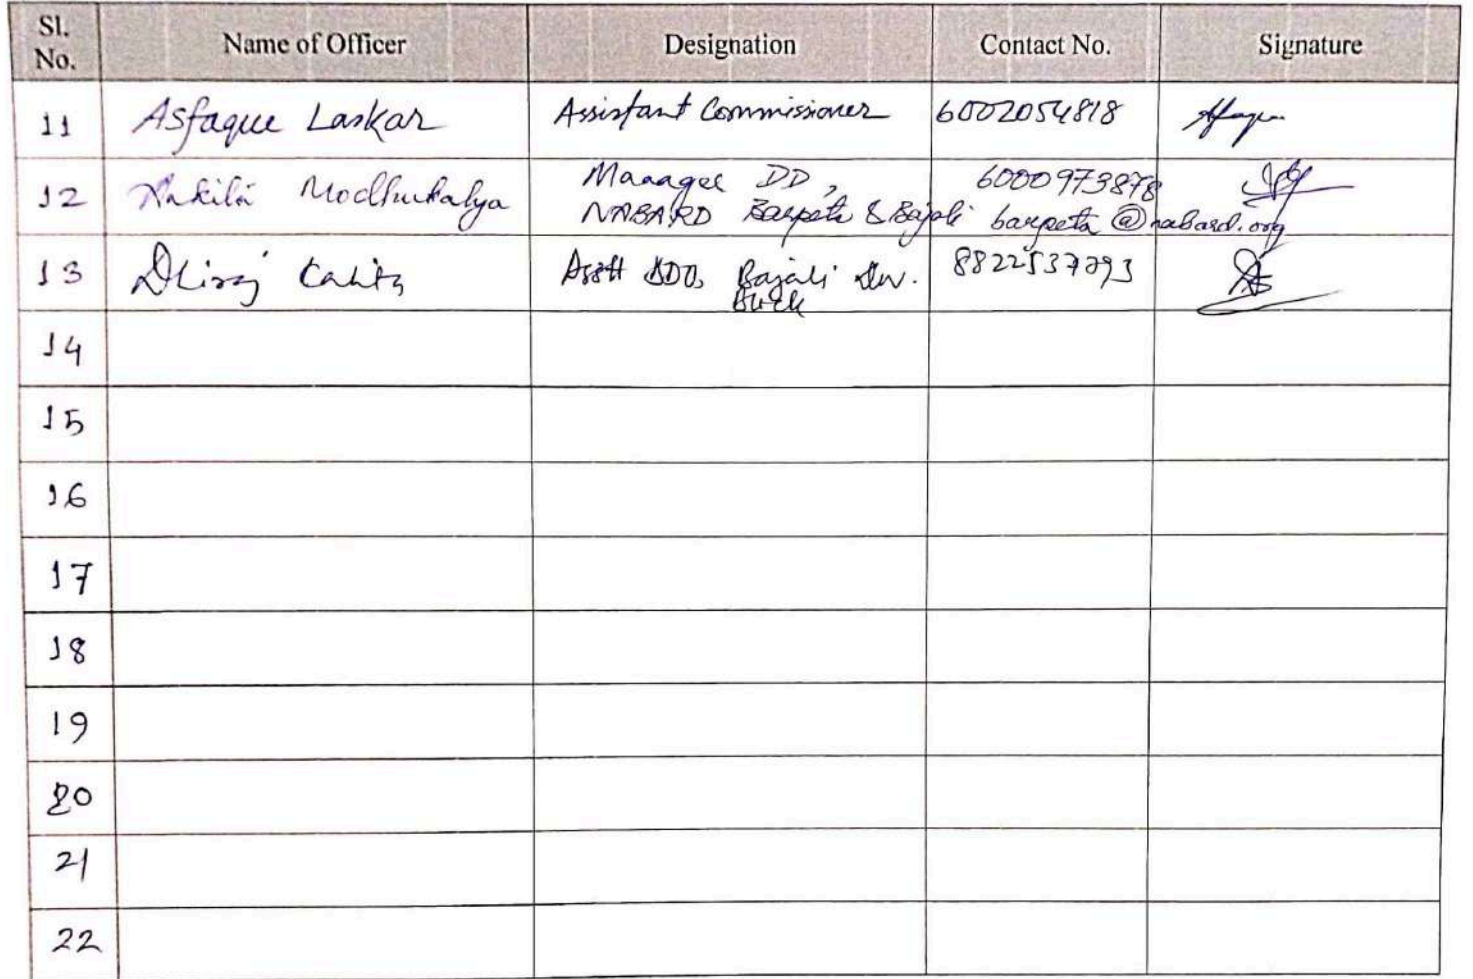 Sl. No. Name of Officer Designation Contact No. Signature
11 Asfaque Laskar Assistant Commissioner 6002054818
12 Modhukalya Manager DD, 6000973878
NABARD Barpeta & Bajali barpeta@nabard.org
13 Dhiraj Kalita Asstt BDO, Bajali Dev. 8822537793
Block
14
15
16
17
18
19
20
21
22